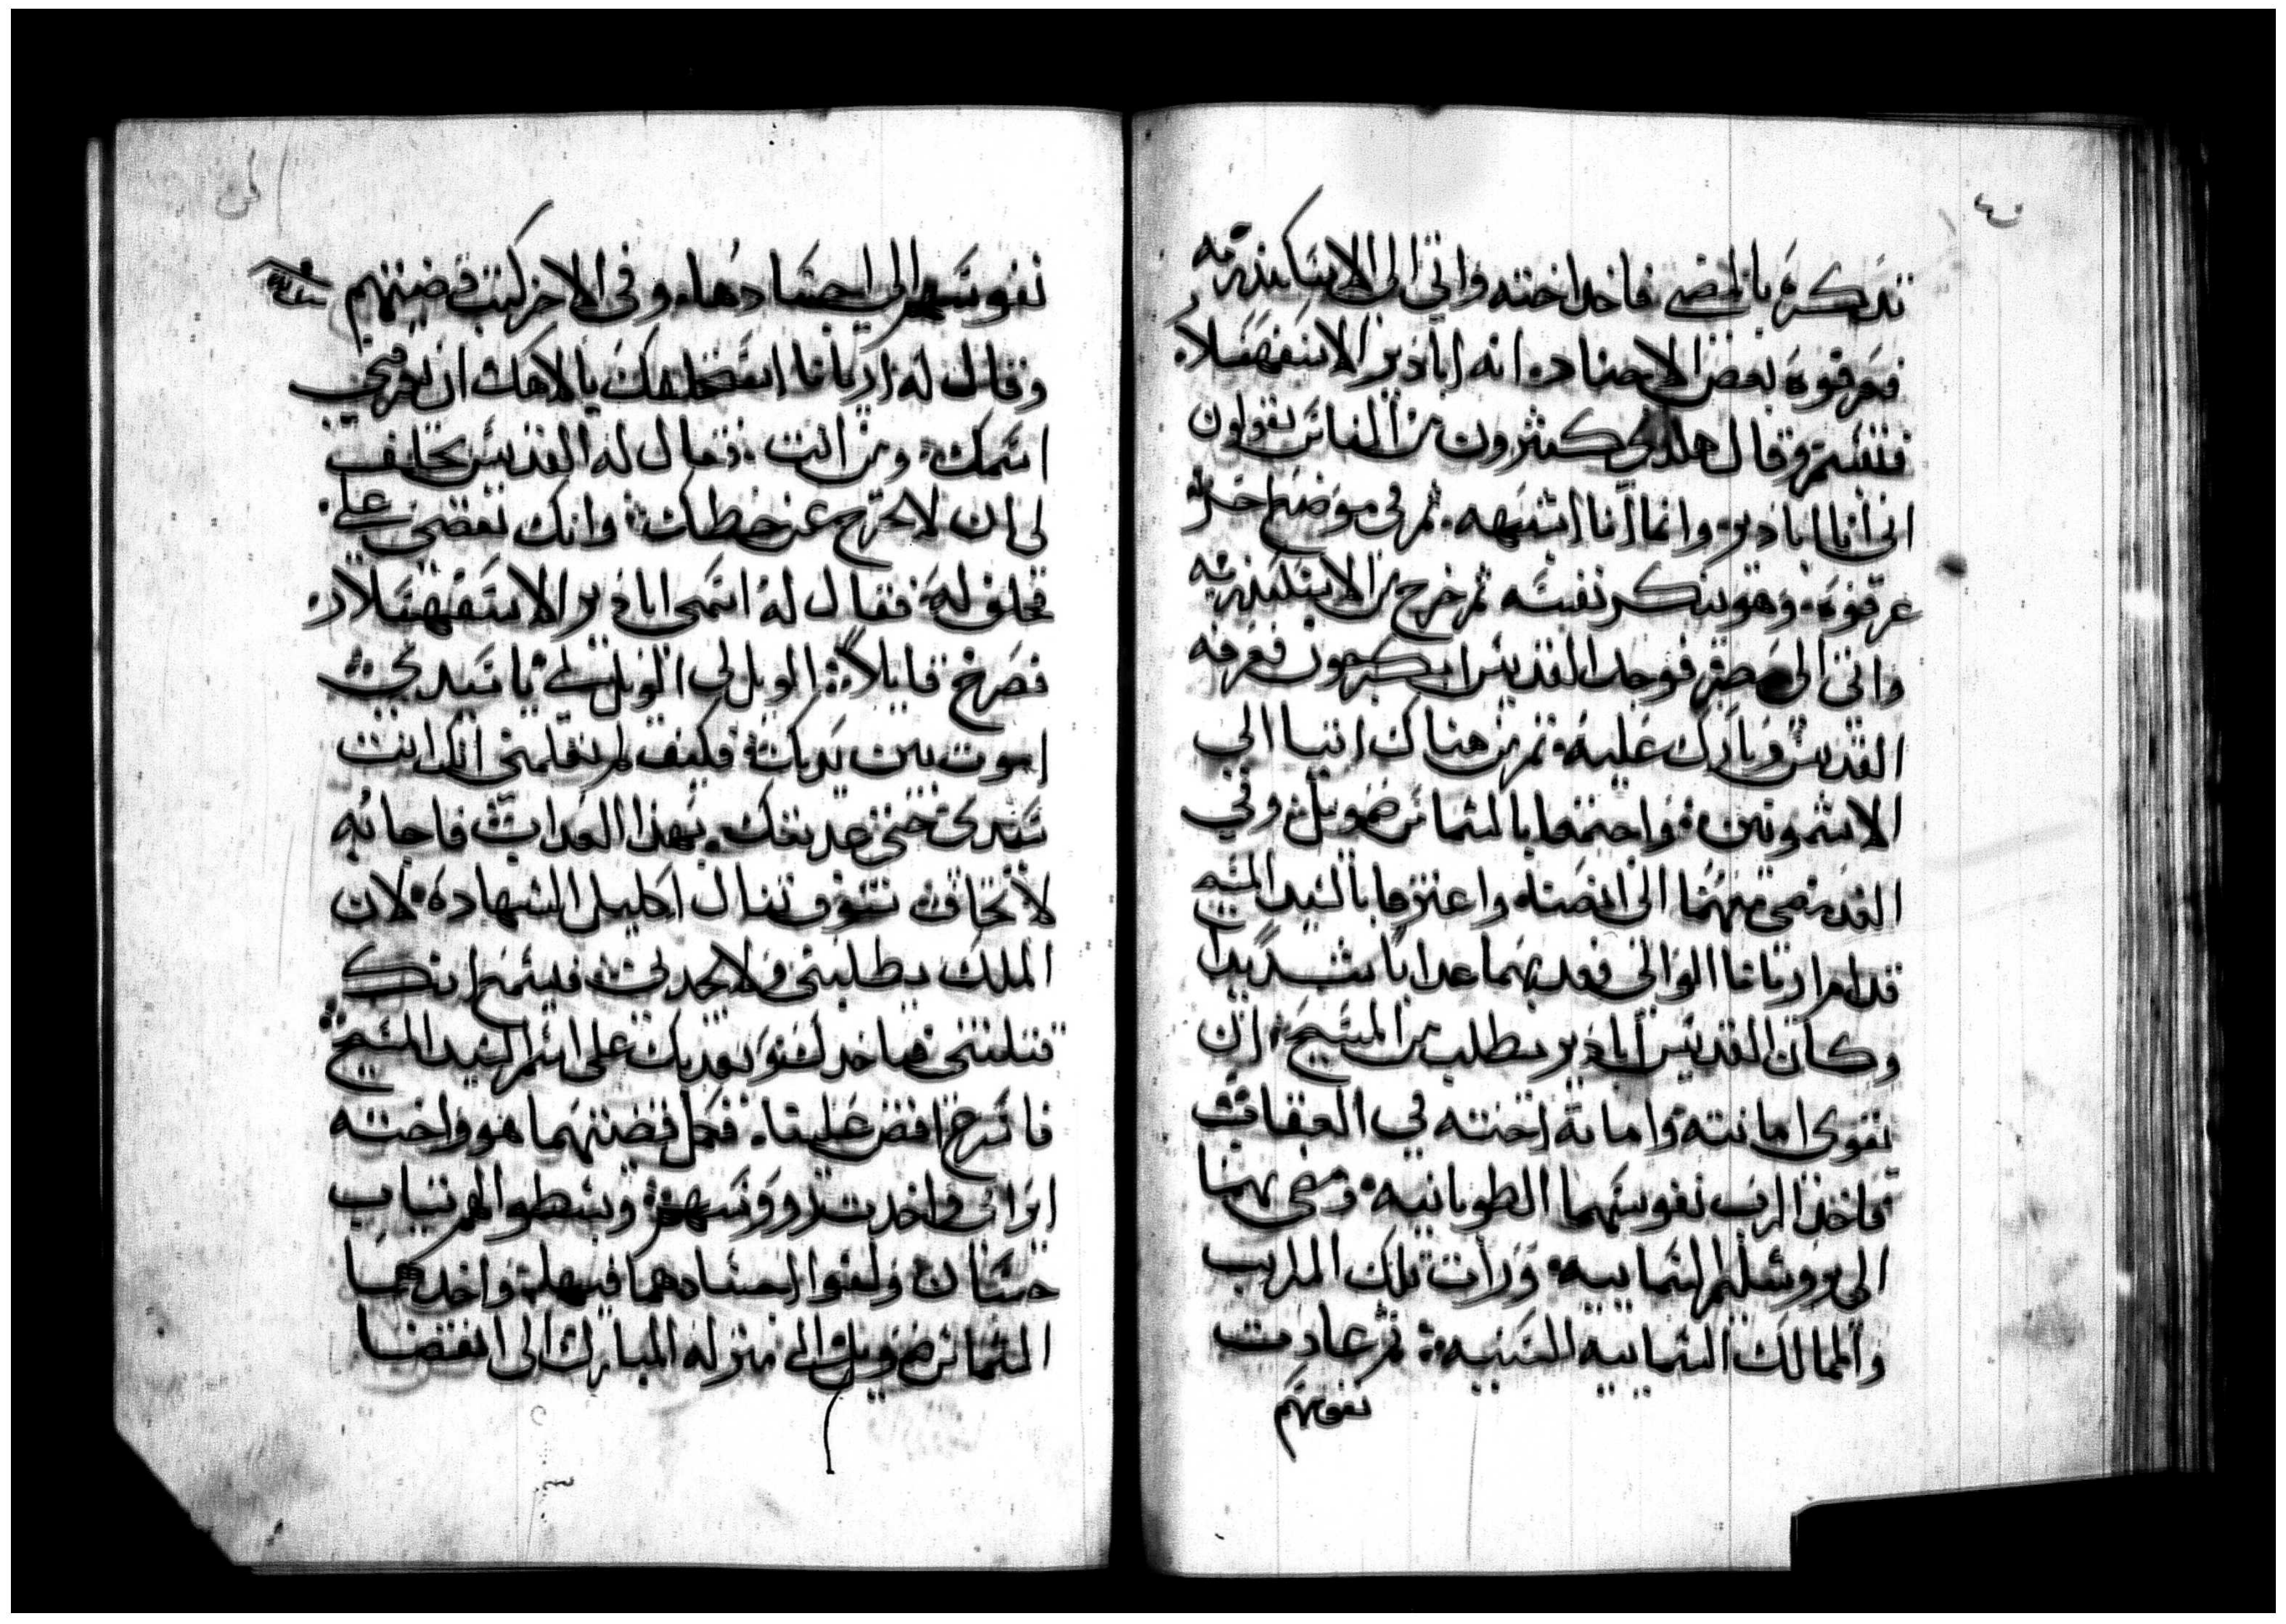 تدكرة بالمضي فاخد اخته واتي الى الاسكندريه
فعرفوه بعض الاجناد انه ابادير الاسفهسلار
فتبسم وقال هلدي كثيرون من الناس يقولون
اني انا ابادير وانما انا اشبهه ثم في موضع اخر
عرفوه وهو ينكر نفسه ثم خرج من الاسكندريه
واتى الى مصر فوجد القديس ابكرجون فعرفه
القديس وبارك عليه ثم من هناك اتيا الى
الاشمونين واجتمعا بالشماس ضويل وفي
الغد مضى منهما الى انصنا واعترفا بالسيد المسيح
قدام اريانا الوالي فعدبهما عدابا شديدا
وكان القديس ابادير يطلب من المسيح ان
يقوي امانته وامانة اخته في العقاب
فاخذ الرب نفوسهما الطوبانيه ومضى بهما
الى يروشليم السمايىه ورات تلك المراتب
والممالك السماييه السنيه ثم عادت
نفوسهم
نفوسهم الى اجسادهما وفي الاخر كتب قضيتهم
وقال له اريانا استحلفك بالاهك ان تعرفني
اسمك ومن انت فقال له القديس تحلف
لي ان لا تخرج عن خطك وانك تقضي علي
فحلف له فقال له اسمي ابادير الاسفهسلار
فصرخ قايلا الويل لي الويل لي يا سيدي
اموت بين يديك فكيف لم تعلمني انك انت
سيدي حتى عدبتك بهذا العداب فاجابه
لا تخاف سوف تنال اكليل الشهاده لان
الملك يطلبني ولا يجدني فيسمع انك
قتلتني فياخدك ويعدبك على اسم السيد المسيح
فاسرع اقض علينا فكمل قضيتهما هو واخته
ايراني واخدت رووسهم وبسطوا لهم تياب
حسان ولفوا اجسادهما فيها واخدهما
الشماس ضويل الى منزله المبارك الى انقضا